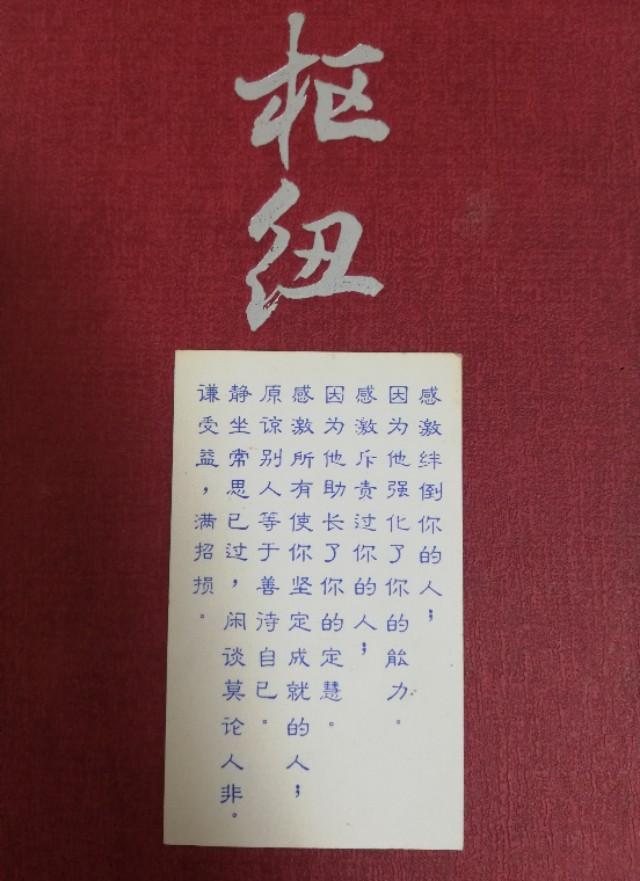 枢纽
感激绊倒你的人；
因为他强化了你的能力。
感激斥责过你的人；
因为他助长了你的定慧。
感激所有使你坚定成就的人；
原谅别人等于善待自已。
静坐常思已过，闲谈莫论人非。
谦受益，满招损。